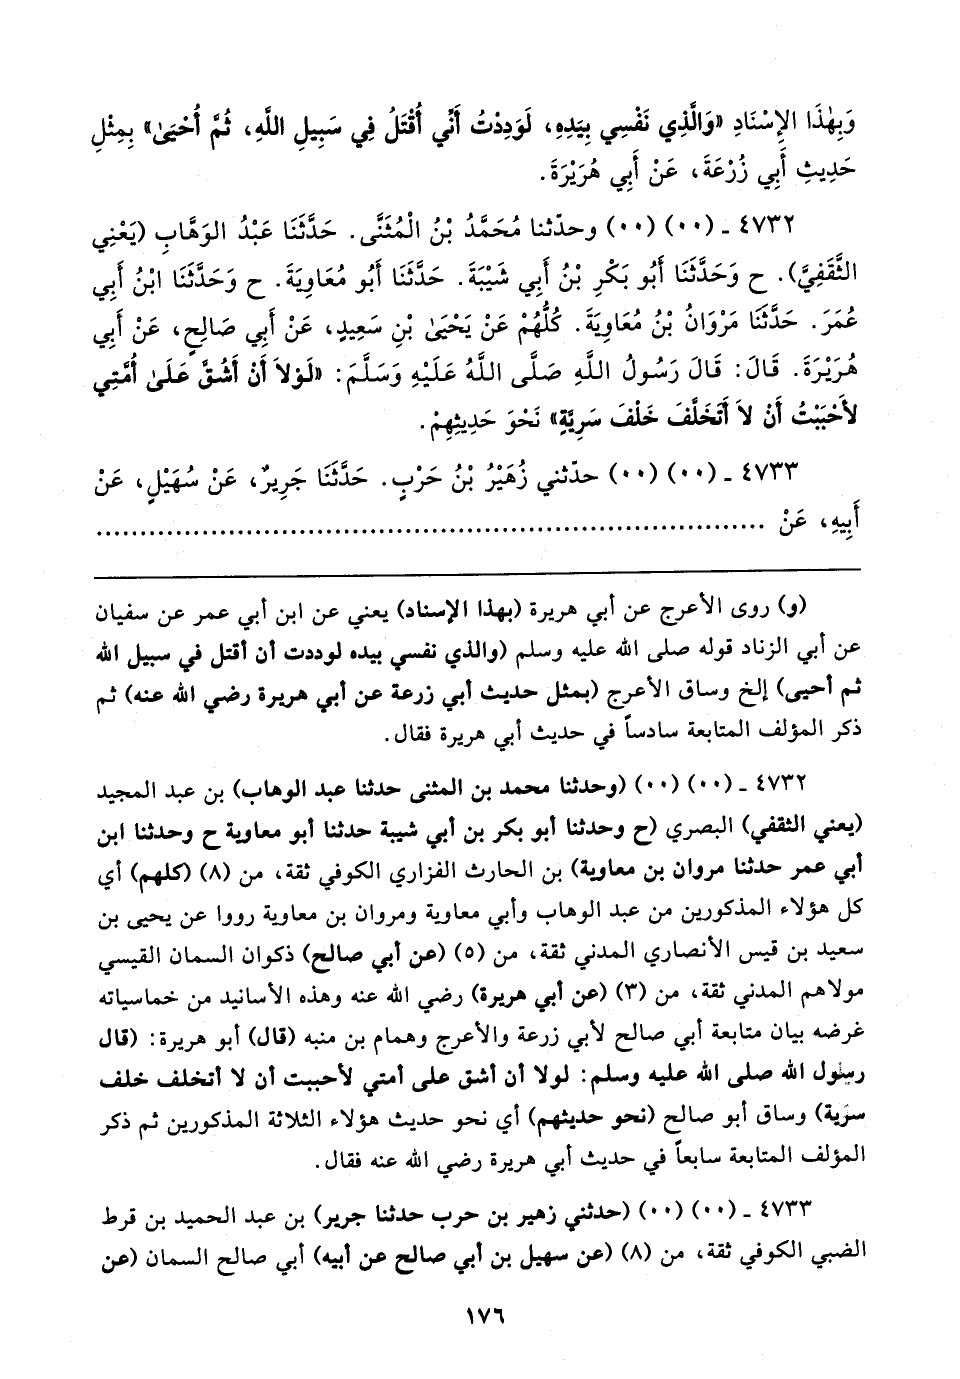 وَبِهٰذَا الإِسْنَادِ «وَالَّذِي نَفْسِي بِيَدِهِ، لَوَدِدْتُ أَنِّي أُقْتَلُ فِي سَبِيلِ اللَّهِ، ثُمَّ أُحْيَىٰ» بِمِثْلِ
حَدِيثِ أَبِي زُرْعَةَ، عَنْ أَبِي هُرَيْرَةَ.
٤٧٣٢ ـ (٠٠) (٠٠) وحدّثنا مُحَمَّدُ بْنُ الْمُثَنَّى. حَدَّثَنَا عَبْدُ الوَهَّابِ (يَعْنِي
الثَّقَفِيَّ). ح وَحَدَّثَنَا أَبُو بَكْرِ بْنُ أَبِي شَيْبَةَ. حَدَّثَنَا أَبُو مُعَاوِيَةَ. ح وَحَدَّثَنَا ابْنُ أَبِي
عُمَرَ. حَدَّثَنَا مَرْوَانُ بْنُ مُعَاوِيَةَ. كُلُّهُمْ عَنْ يَحْيَىٰ بْنِ سَعِيدٍ، عَنْ أَبِي صَالِحٍ، عَنْ أَبِي
هُرَيْرَةَ. قَالَ: قَالَ رَسُولُ اللَّهِ صَلَّى اللَّهُ عَلَيْهِ وَسَلَّمَ: «لَوْلاَ أَنْ أَشُقَّ عَلَىٰ أُمَّتِي
لأَحْبَبْتُ أَنْ لاَ أَتَخَلَّفَ خَلْفَ سَرِيَّةٍ» نَحْوَ حَدِيثِهِمْ.
٤٧٣٣ ـ (٠٠) (٠٠) حدّثني زُهَيْرُ بْنُ حَرْبٍ. حَدَّثَنَا جَرِيرٌ، عَنْ سُهَيْلٍ، عَنْ
أَبِيهِ، عَنْ ................................................................
(و) روى الأعرج عن أبي هريرة (بهذا الإسناد) يعني عن ابن أبي عمر عن سفيان
عن أبي الزناد قوله صلى الله عليه وسلم (والذي نفسي بيده لوددت أن أقتل في سبيل الله
ثم أحيى) إلخ وساق الأعرج (بمثل حديث أبي زرعة عن أبي هريرة رضي الله عنه) ثم
ذكر المؤلف المتابعة سادساً في حديث أبي هريرة فقال.
٤٧٣٢ ـ (٠٠) (٠٠) (وحدثنا محمد بن المثنى حدثنا عبد الوهاب) بن عبد المجيد
(يعني الثقفي) البصري (ح وحدثنا أبو بكر بن أبي شيبة حدثنا أبو معاوية ح وحدثنا ابن
أبي عمر حدثنا مروان بن معاوية) بن الحارث الفزاري الكوفي ثقة، من (٨) (كلهم) أي
كل هؤلاء المذكورين من عبد الوهاب وأبي معاوية ومروان بن معاوية رووا عن يحيى بن
سعيد بن قيس الأنصاري المدني ثقة، من (٥) (عن أبي صالح) ذكوان السمان القيسي
مولاهم المدني ثقة، من (٣) (عن أبي هريرة) رضي الله عنه وهذه الأسانيد من خماسياته
غرضه بيان متابعة أبي صالح لأبي زرعة والأعرج وهمام بن منبه (قال) أبو هريرة: (قال
رسول الله صلى الله عليه وسلم: لولا أن أشق على أمتي لأحببت أن لا أتخلف خلف
سرية) وساق أبو صالح (نحو حديثهم) أي نحو حديث هؤلاء الثلاثة المذكورين ثم ذكر
المؤلف المتابعة سابعاً في حديث أبي هريرة رضي الله عنه فقال.
٤٧٣٣ ـ (٠٠) (٠٠) (حدثني زهير بن حرب حدثنا جرير) بن عبد الحميد بن قرط
الضبي الكوفي ثقة، من (٨) (عن سهيل بن أبي صالح عن أبيه) أبي صالح السمان (عن
١٧٦